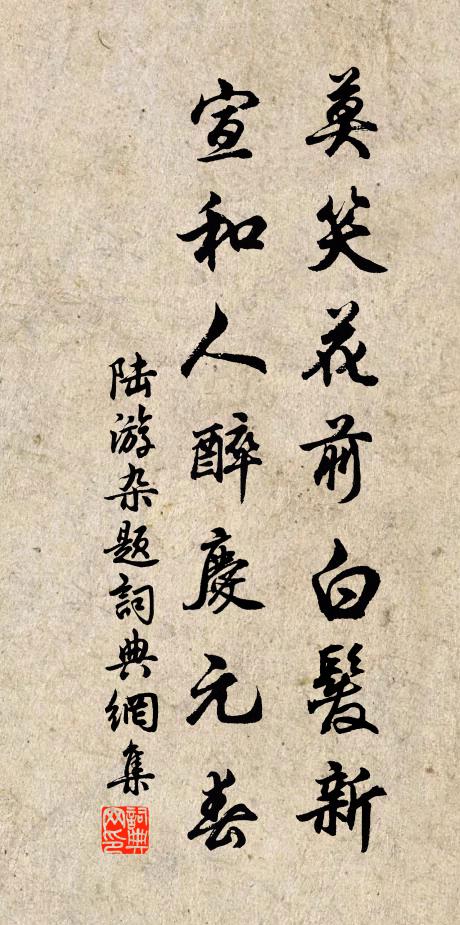 莫笑花前白髮新
宣和人醉慶元春
陆游杂题詞典網集
詞典网印